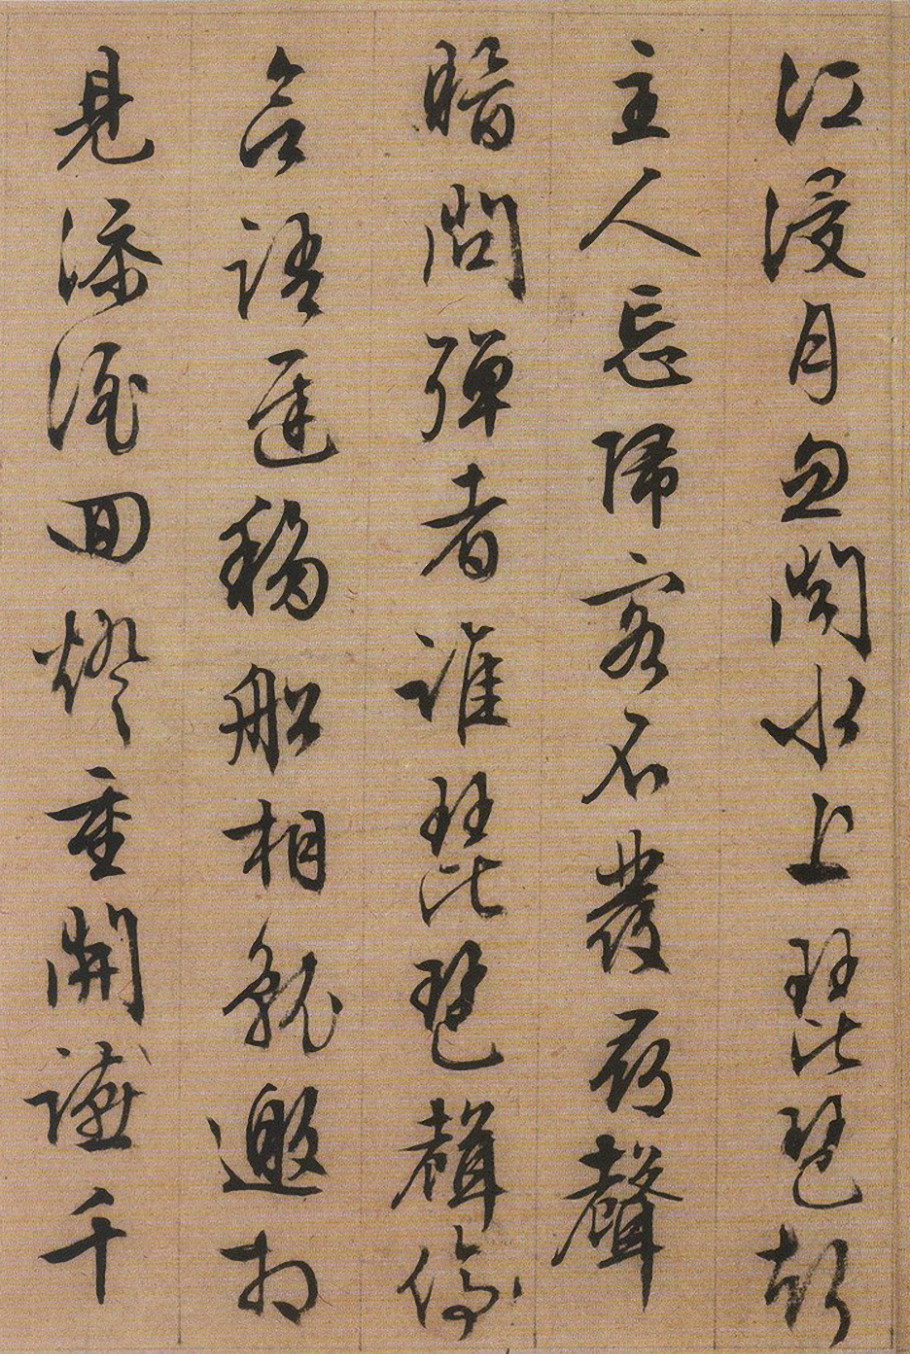 江浸月忽聞水上琵琶聲
主人忘歸客不發尋聲
暗問彈者誰琵琶聲停
含語遲移船相就邀相
見添酒回燈重開讌千